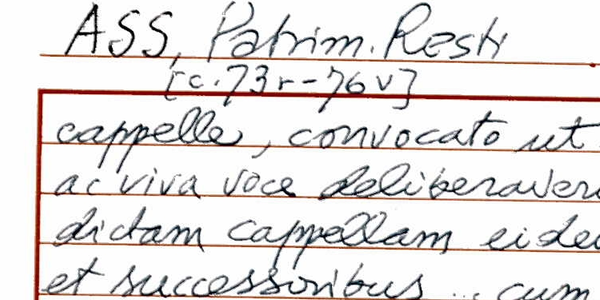 ASS, Patrim. Resti
[c. 73r-76v]
cappelle, convocato ut
ac viva voce deliberaver
dictam cappellam eide
et successoribus ... cum